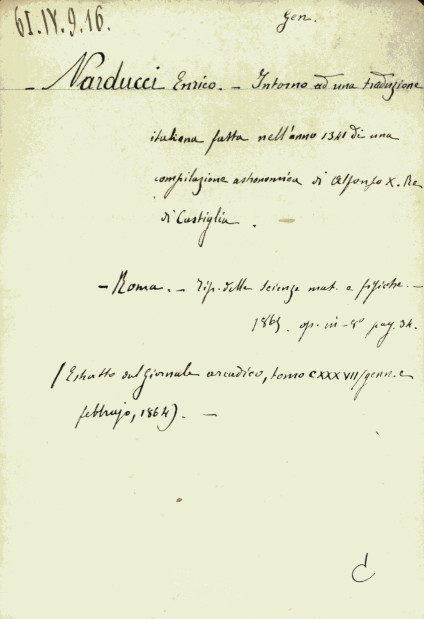 61.IV.9.16.
Gen.
- Narducci Enrico. - Intorno ad una traduzione
italiana fatta nell'anno 1341 di una
compilazione astronomica di Alfonso X. Re
di Castiglia.
- Roma. - Tip. delle scienze mat. e fisiche. -
1865. op. in-8° pag. 34.
(Estratto dal Giornale arcadico, tomo CXXXVII (genn. e
febbrajo, 1864). -